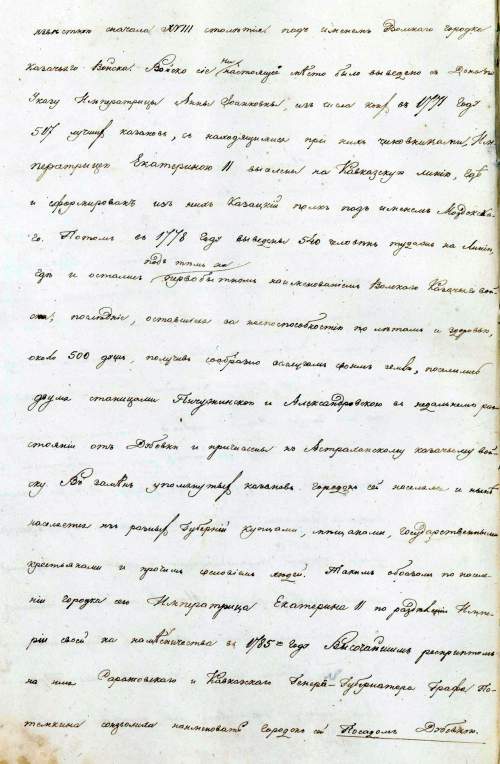 извѣстно сначала XVIII столѣтія подъ именемъ Волжскаго городка
казачьяго Войска. Войско сіе на настоящее мѣсто было выведено съ Дона по
Указу Императрицы Анны Іоанновны, изъ числа коихъ въ 1771 году
507 лучшихъ казаковъ, съ находящимися при нихъ чиновниками, Им-
ператрицею Екатериною II высланы на Кавказскую линію, гдѣ
и сформированъ изъ нихъ Казацкій полкъ подъ именемъ Моздокска-
го. Потомъ въ 1778 году выведены 540 человѣкъ туда же на Линію,
гдѣ и остались подъ тѣмъ же первобытнымъ наименованіемъ Волжскаго Казачьяго вой-
ска; послѣдніе, оставшіеся за неспособностію по лѣтамъ и здоровью,
около 500 душъ, получивъ сообразно
двумя станицами Пичужинскою и Александровскою въ недальнемъ раз-
стояніи отъ Дубовки и причислены къ Астраханскому казачьему вой-
ску. Въ замѣнъ упомянутыхъ казаковъ городокъ сей населялся и нынѣ
населяется изъ разныхъ Губерній купцами, мѣщанами, государственными
крестьянами и прочимъ сословіемъ людей. Такимъ образомъ по населе-
ніи городка сего Императрица Екатерина II по раздѣленіи Импе-
ріи своей на намѣстничества въ 1785= году Высочайшимъ рескриптомъ
на имя Саратовскаго и Кавказскаго Генералъ-Губернатора Графа По-
темкина соизволила наименовать городокъ сей Посадомъ Дубовкою.